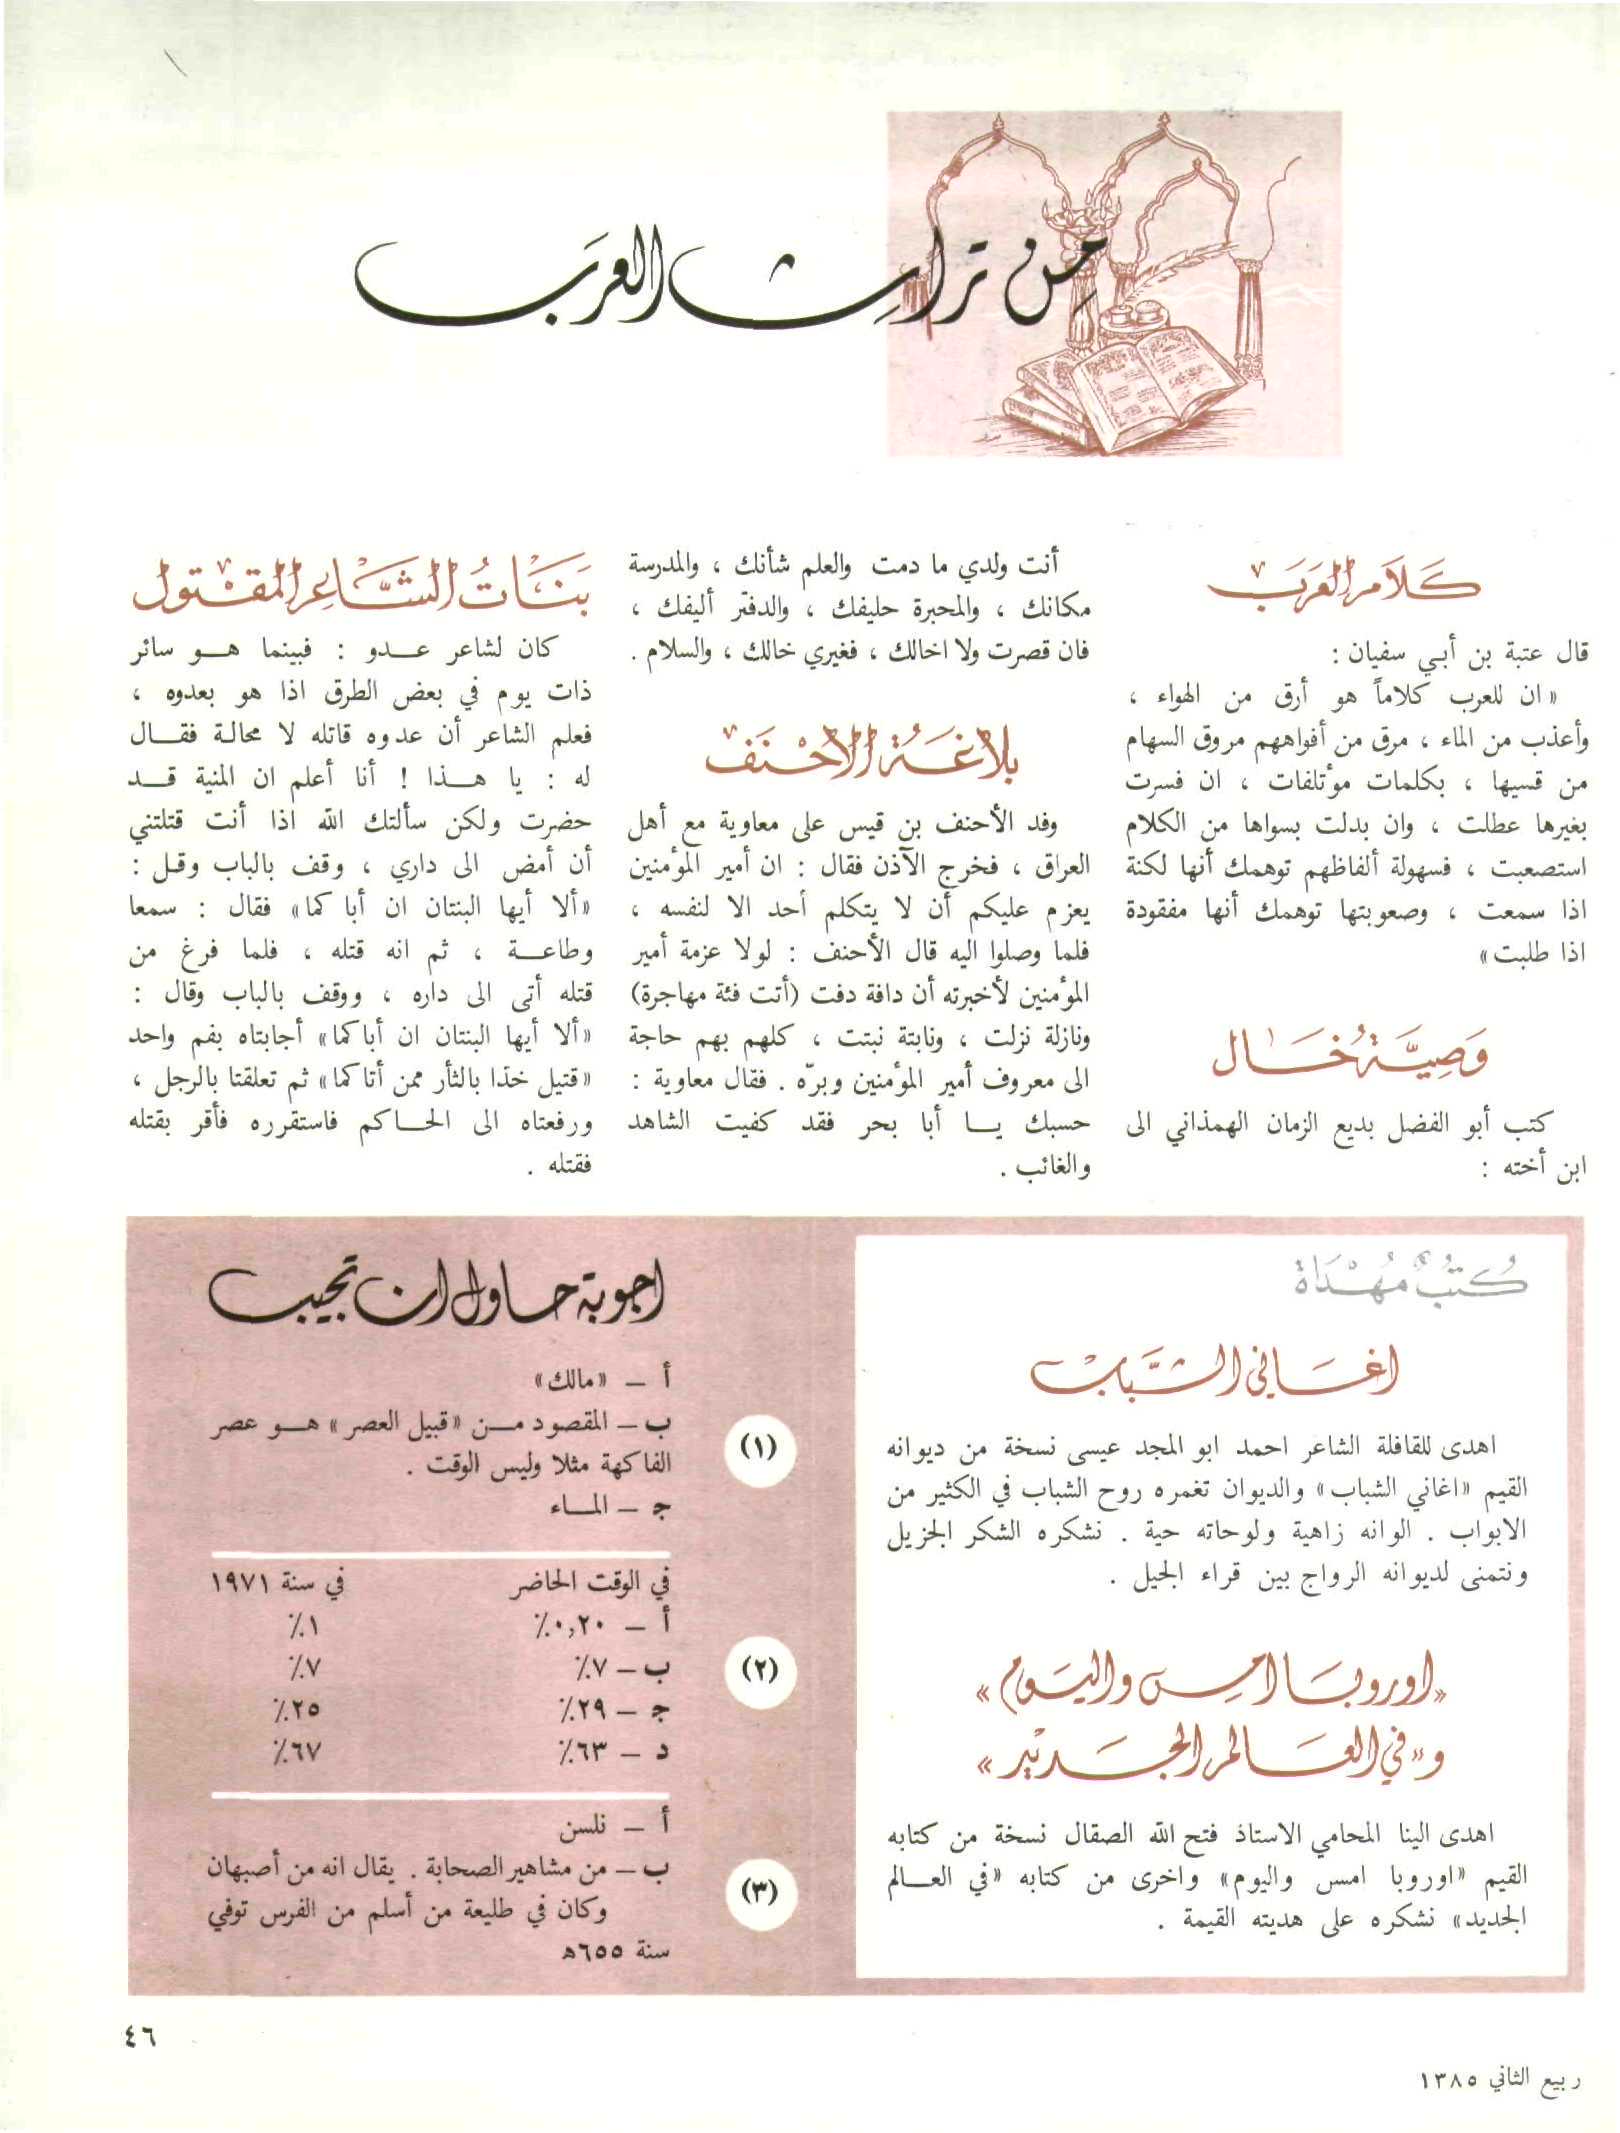 من تراث العرب
كلام العرب
قال عتبة بن أبي سفيان :
« ان للعرب كلاماً هو أرق من الهواء ،
وأعذب من الماء ، مرق من أفواههم مروق السهام
من قسيها ، بكلمات مؤتلفات ، ان فسرت
بغيرها عطلت ، وان بدلت بسواها من الكلام
استصعبت ، فسهولة ألفاظهم توهمك أنها لكنة
اذا سمعت ، وصعوبتها توهمك أنها مفقودة
اذا طلبت »
وصية خال
كتب أبو الفضل بديع الزمان الهمذاني الى
ابن أخته :
أنت ولدي ما دمت والعلم شأنك ، والمدرسة
مكانك ، والمحبرة حليفك ، والدفتر أليفك ،
فان قصرت ولا اخالك ، فغيري خالك ، والسلام .
بلاغة الاحنف
وفد الأحنف بن قيس على معاوية مع أهل
العراق ، فخرج الآذن فقال : ان أمير المؤمنين
يعزم عليكم أن لا يتكلم أحد الا لنفسه ،
فلما وصلوا اليه قال الأحنف : لولا عزمة أمير
المؤمنين لأخبرته أن دافة دفت (أتت فئة مهاجرة)
ونازلة نزلت ، ونابتة نبتت ، كلهم بهم حاجة
الى معروف أمير المؤمنين وبرّه . فقال معاوية :
حسبك يا أبا بحر فقد كفيت الشاهد
والغائب .
بنات الشاعر المقتول
كان لشاعر عدو : فبينما هو سائر
ذات يوم في بعض الطرق اذا هو بعدوه ،
فعلم الشاعر أن عدوه قاتله لا محالة فقال
له : يا هذا ! أنا أعلم ان المنية قد
حضرت ولكن سألتك الله اذا أنت قتلتني
أن أمض الى داري ، وقف بالباب وقل :
«ألا أيها البنتان ان أباكما» فقال : سمعا
وطاعة ، ثم انه قتله ، فلما فرغ من
قتله أتى الى داره ، ووقف بالباب وقال :
«ألا أيها البنتان ان أباكما» أجابتاه بفم واحد
«قتيل خذا بالثأر ممن أتاكما» ثم تعلقتا بالرجل ،
ورفعتاه الى الحاكم فاستقرره فأقر بقتله
فقتله .
كتب مهداة
اغاني الشباب
اهدى للقافلة الشاعر احمد ابو المجد عيسى نسخة من ديوانه
القيم «اغاني الشباب» والديوان تغمره روح الشباب في الكثير من
الابواب . الوانه زاهية ولوحاته حية . نشكره الشكر الجزيل
ونتمنى لديوانه الرواج بين قراء الجيل .
«اوروبا امس واليوم»
و«في العالم الجديد»
اهدى الينا المحامي الاستاذ فتح الله الصقال نسخة من كتابه
القيم «اوروبا امس واليوم» واخرى من كتابه «في العالم
الجديد» نشكره على هديته القيمة .
اجوبة حاول ان تجيب
(١)
أ – «مالك»
ب – المقصود من «قبيل العصر» هو عصر
الفاكهة مثلا وليس الوقت .
ج – الماء
(٢)
في الوقت الحاضر في سنة ١٩٧١
أ – ٠,٢٠٪ ١٪
ب – ٧٪ ٧٪
ج – ٢٩٪ ٢٥٪
د – ٦٣٪ ٦٧٪
(٣)
أ – نلسن
ب – من مشاهير الصحابة . يقال انه من أصبهان
وكان في طليعة من أسلم من الفرس توفي
سنة ٦٥٥ه
٤٦
ربيع الثاني ١٣٨٥